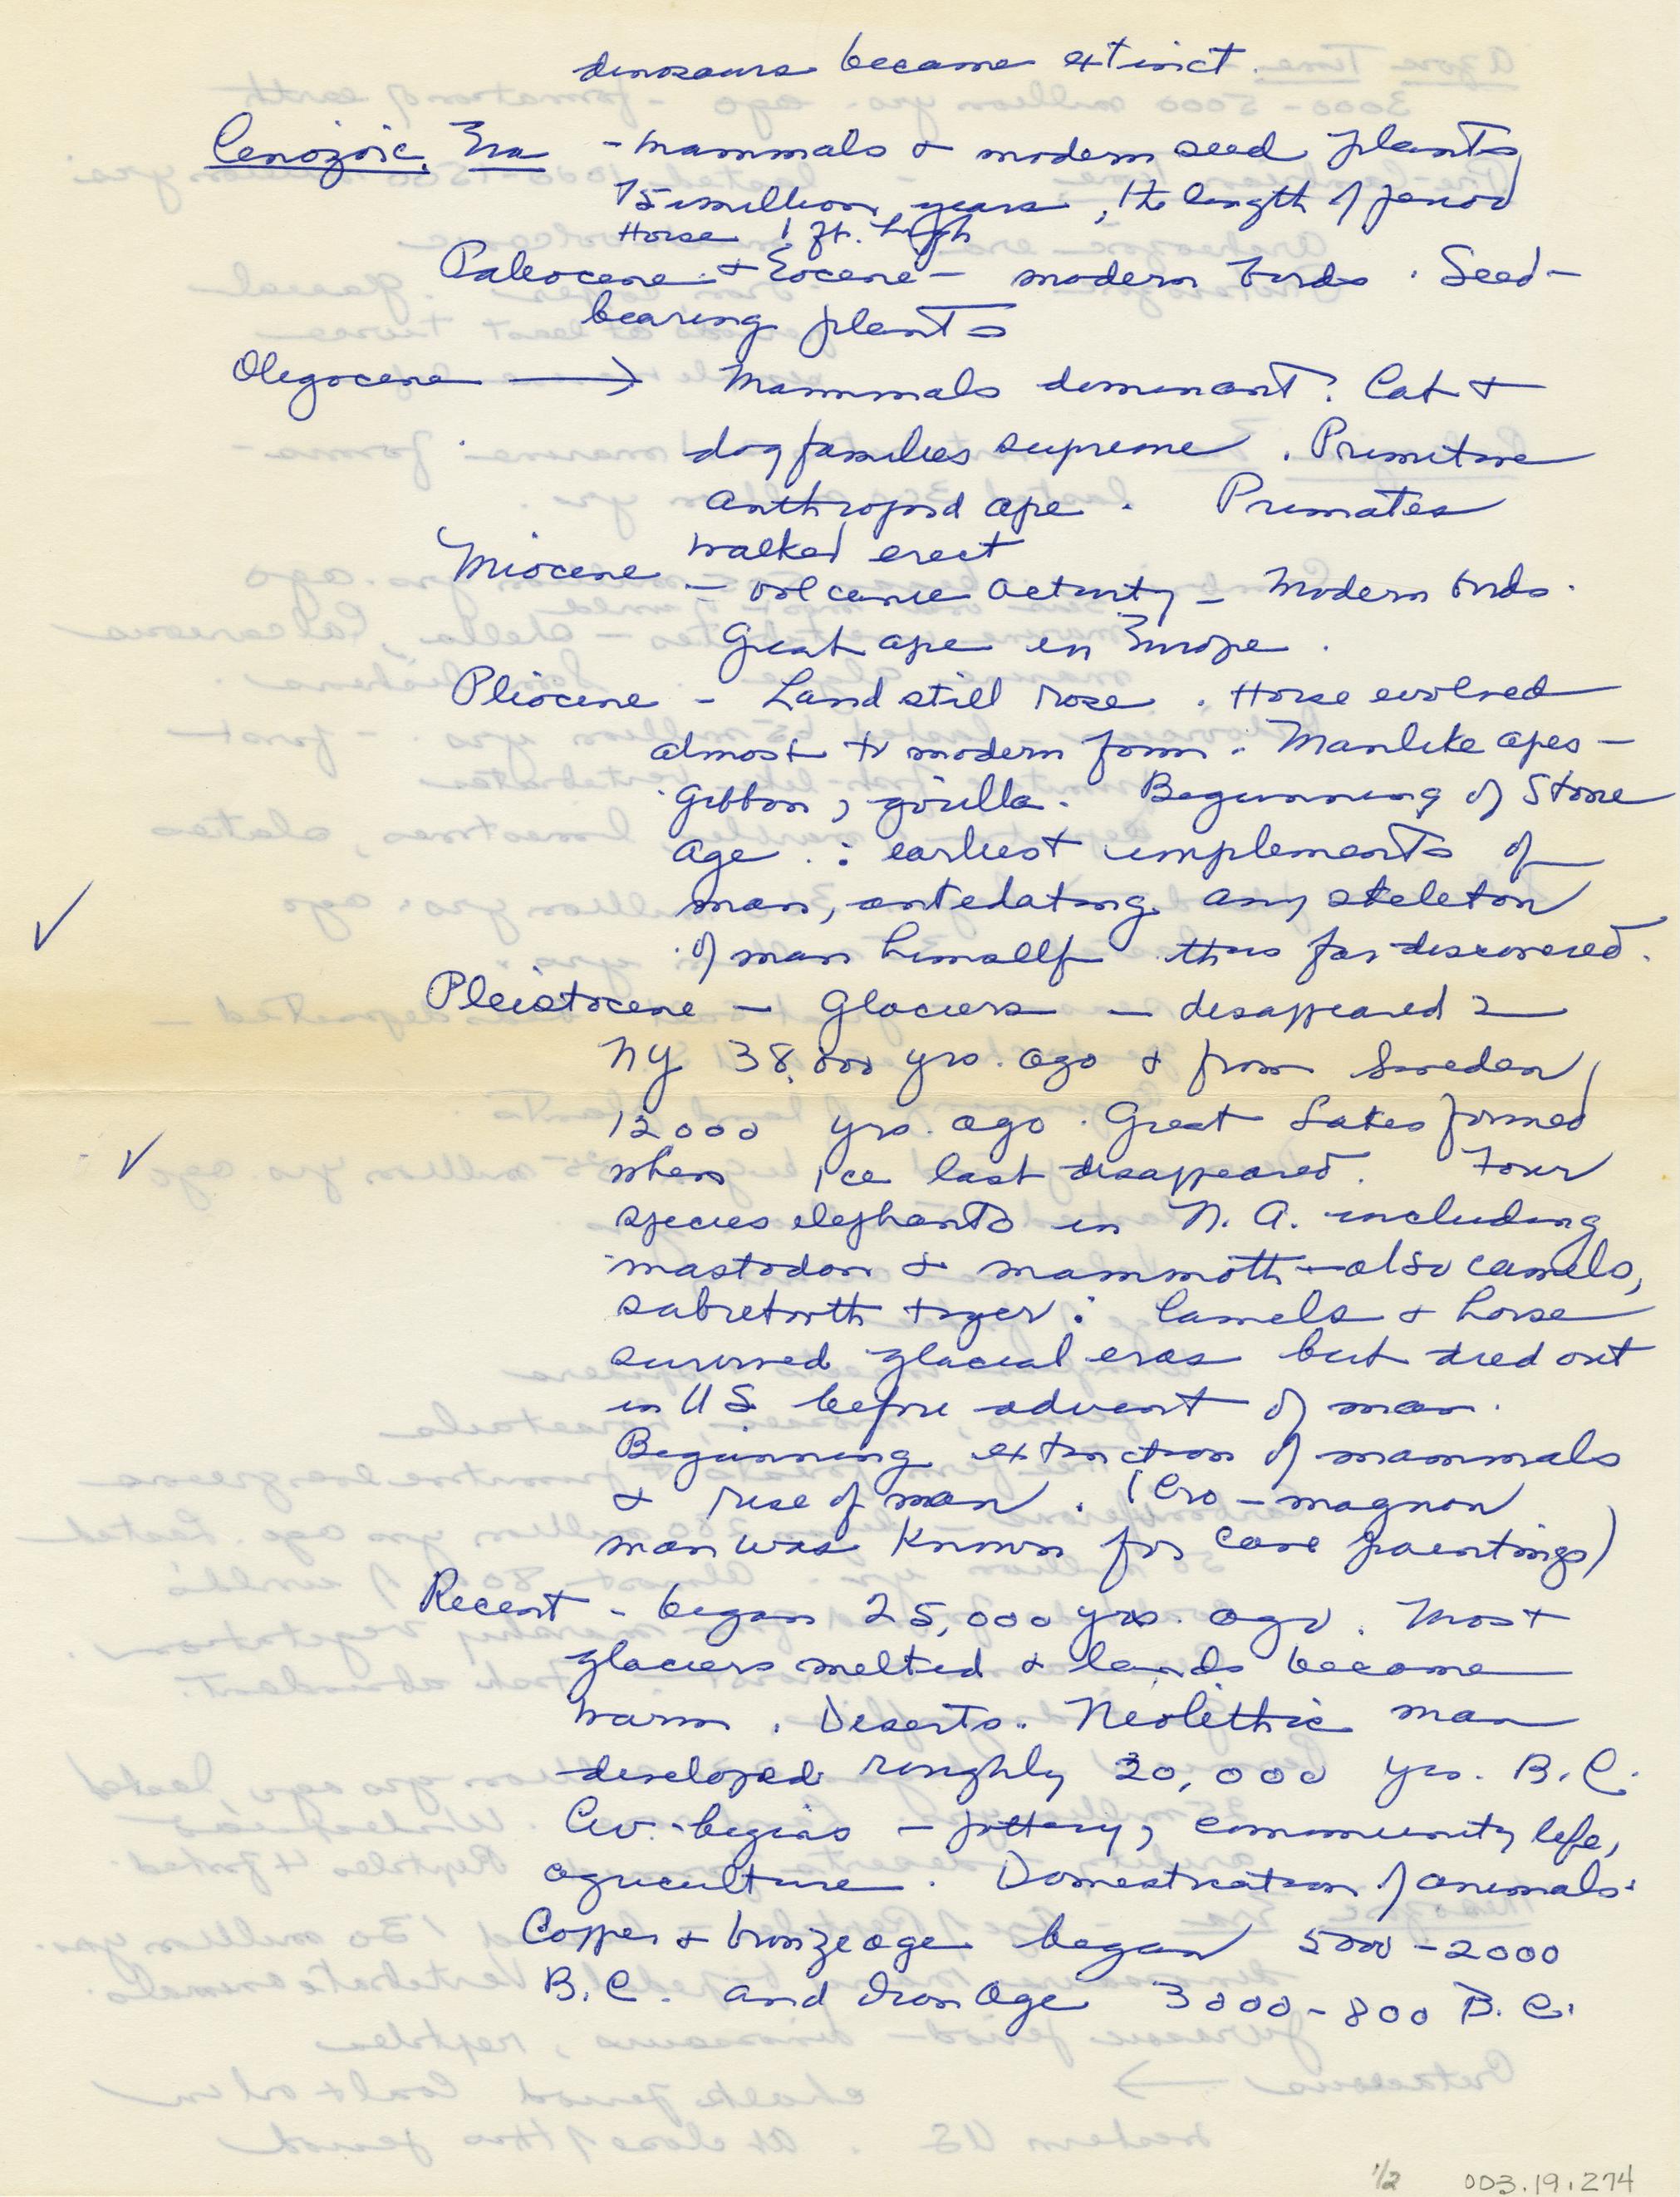 dinosaurs became extinct.
Cenozoic Era - mammals & modern seed plants
75 million years, the length of period
Horse 1 ft. high
Paleocene & Eocene - modern birds. Seed-
bearing plants
Oligocene → Mammals dominant. Cat &
dog families supreme. Primitive
anthropoid ape. Primates
walked erect
Miocene - volcanic activity - Modern birds.
Great ape in Europe.
Pliocene - Land still rose. Horse evolved
almost to modern form. Manlike apes -
Gibbon, gorilla. Beginning of Stone
age. : earliest implements of
man, antedating any skeleton
of man himself thus far discovered.
Pleistocene - Glaciers - disappeared
NY 38,000 yrs. ago & from Sweden
12000 yrs. ago. Great Lakes formed
when ice last disappeared. Four
species elephants in N. A. including
mastodon & mammoth - also camels,
sabretooth tiger. Camels & horse
survived glacial eras but died out
in US before advent of man.
Beginning extinction of mammals
& rise of man. (Cro-magnon
man was known for cave paintings)
Recent - began 25,000 yrs. ago. Most
glaciers melted & lands became
warm. Deserts. Neolithic man
developed roughly 20,000 yrs. B.C.
Civ. begins - pottery, community life,
agriculture. Domestication of animals.
Copper & bronze age began 5000-2000
B.C. and Iron Age 3000-800 B.C.
1/2 003.19.274